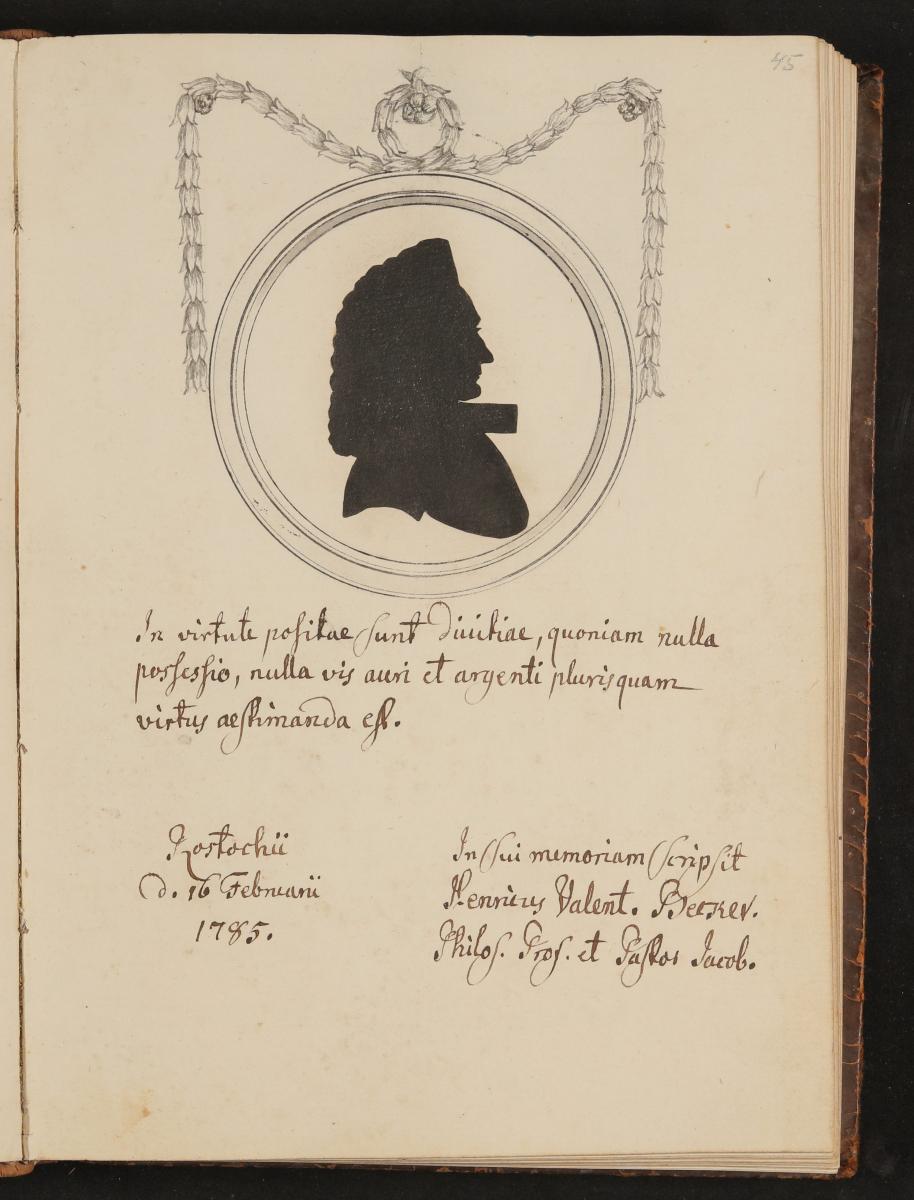 45
In virtute positae sunt divitiae, quoniam nulla
possessio, nulla vis auri et argenti pluris quam
virtus aestimanda est.
Rostochii
d. 16 Februarii
1785.
In sui memoriam scripsit
Henricus Valent. Becker.
Philos. Pros. et Pastor Jacob.